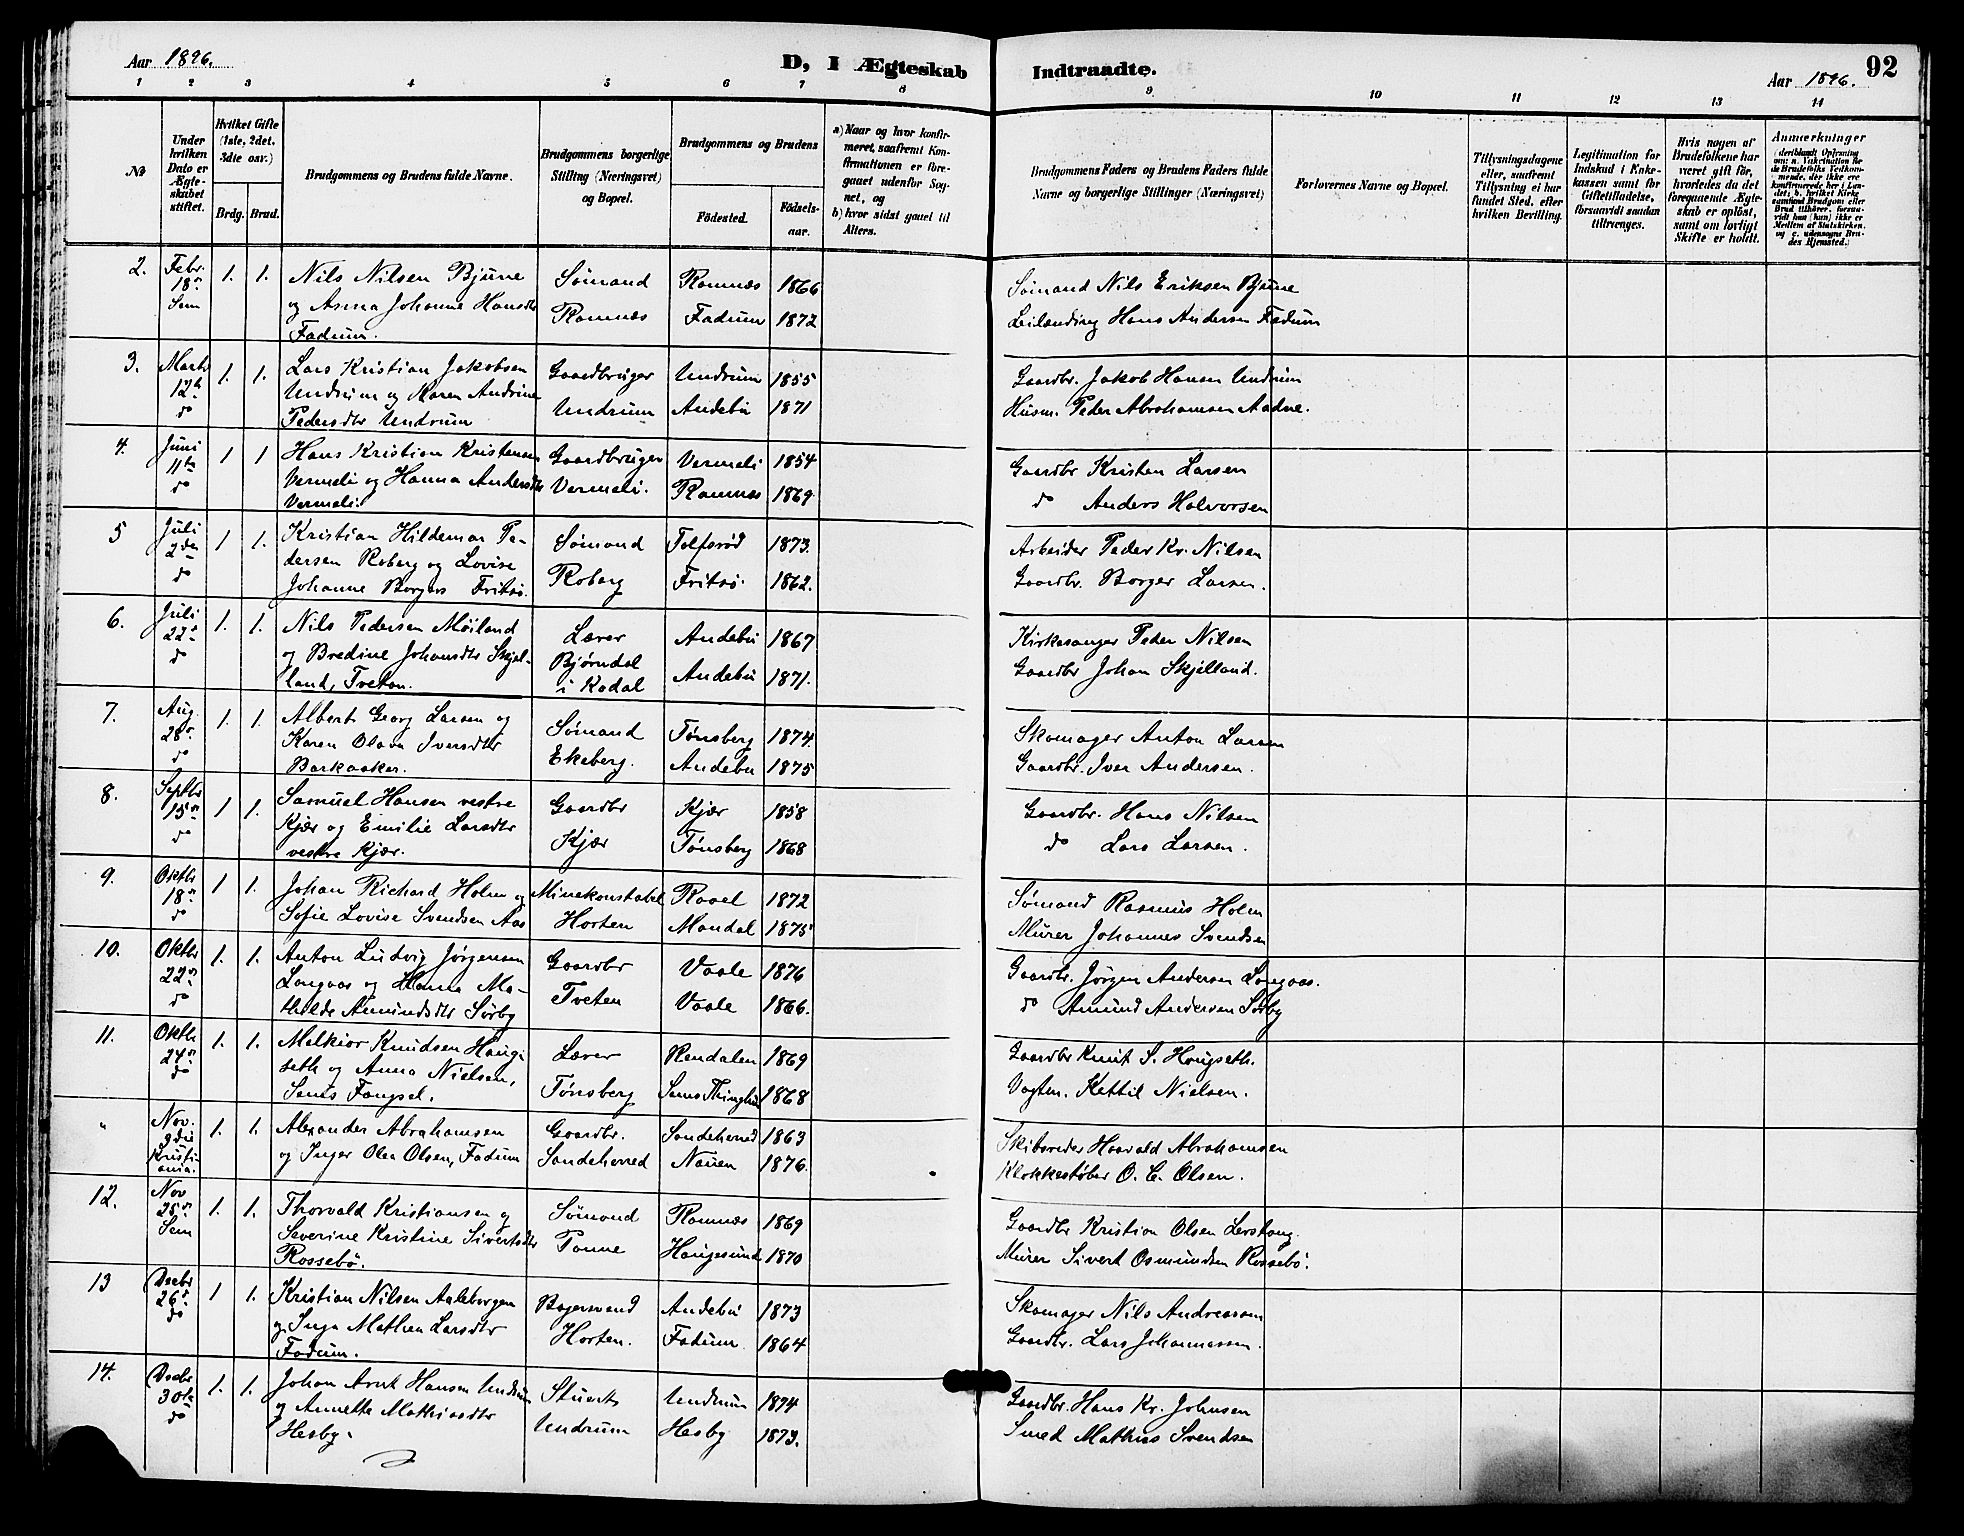 Aar 1896.
D, I Ægteskab
Indtraadte.
92
Aar 1896.
1 2 3 4 5 6 7 8 9 10 11 12 13 14
No
Under hvilken Dato er Ægteskabet stiftet.
Hvilket Gifte (1ste, 2det, 3die osv.)
Brdg. Brud.
Brudgommens og Brudens fulde Navne.
Brudgommens borgerlige Stilling (Næringsvei) og Bopæl.
Brudgommens og Brudens
Födested.
Födselsaar.
a) Naar og hvor konfirmeret, saafremt Konfirmationen er foregaaet udenfor Sognet, og
b) hvor sidst gaaet til Alters.
Brudgommens Faders og Brudens Faders fulde Navne og borgerlige Stillinger (Næringsvei)
Forlovernes Navne og Bopæl.
Tillysningsdagene eller, saafremt Tillysning ei har fundet Sted, efter hvilken Bevilling.
Legitimation for Indskud i Enkekassen samt for Giftetilladelse, forsaavidt saadan tiltrænges.
Hvis nogen af Brudefolkene har været gift før, hvorledes da det foregaaende Ægteskab er oplöst, samt om lovligt Skifte er holdt.
Anmærkninger
2. Febr. 18de Sem 1. 1.
Nils Nilsen Bjune
og Anna Johanne Hansdtr
Fadum.
Sømand
Ramnæs
Ramnæs 1866
Fadum 1872
Sømand Nils Eriksen Bjune
Leilænding Hans Andersen Fadum
3. Marts 12te do 1. 1.
Lars Kristian Jakobsen
Undrum og Karen Andrine
Pedersdtr Undrum
Gaardbruger
Undrum
Undrum 1855
Andebu 1871
Gaardbr. Jakob Hansen Undrum
Husm. Peder Abrahamsen Aadne.
4. Juni 11te do 1 1
Hans Kristian Kristensen
Vermeli og Hanna Andersdtr
Vermeli.
Gaardbruger
Vermeli.
Vermeli 1854
Ramnæs 1869.
Gaardbr Kristen Larsen
do Anders Halvorsen
5 Juli 2den do 1 1.
Kristian Hildemar Pedersen Roberg og Lovise
Johanne Borgers Fritsø.
Sømand
Roberg
Tolfsrød 1873.
Fritsö. 1862.
Arbeider Peder Kr. Nilsen
Gaardbr. Borger Larsen.
6. Juli 22de do 1. 1.
Nils Pedersen Møiland
og Bredine Johansdtr Skjelland, Tveten.
Lærer
Bjørndal
i Kodal
Andebu 1867
Andebu 1871.
Kirkesanger Peder Nilsen
Gaardbr Johan Skjelland.
7. Aug. 28de do 1. 1.
Albert Georg Larsen og
Karen Olava Iversdtr
Barkaaker.
Sømand
Ekeberg.
Tønsberg 1874.
Andebu 1875
Skomager Anton Larsen
Gaardbr. Iver Andersen.
8. Septbr 15de do 1 1.
Samuel Hansen vestre
Kjær og Emilie Larsdtr
vestre Kjær.
Gaardbr
Kjær
Kjær 1858
Tønsberg 1868
Gaardbr. Hans Nilsen
do Lars Larsen.
9. Oktbr 18de do 1 1.
Johan Richard Holm og
Sofie Lovise Svendsen Aas
Minekonstabel
Horten
Raael 1872
Mandal 1875
Sømand Rasmus Holm
Murer Johannes Svendsen
10. Oktbr 22de do 1. 1.
Anton Ludvig Jørgensen
Langaas og Hanna Mathilde Amundsdtr Sørby
Gaardbr
Tveten
Vaale 1876
Vaale 1866.
Gaardbr. Jørgen Andersen Langaas.
do Amund Andersen Sørby
11. Oktbr 24de do 1. 1.
Melkior Knudsen Haugseth og Anna Nielsen,
Sems Fængsel.
Lærer
Tønsberg
Rendalen 1869
Sems Thinghus 1868
Gaardbr Knut S. Haugseth.
Vagtm. Kettil Nielsen.
" Nov. 9die Kristiania. 1. 1.
Alexander Abrahamsen
og Inger Olea Olsen, Fadum
Gaardbr.
Sandeherred
Sandeherred 1863
Nauen 1876.
Skibsreder Haavald Abrahamsen
Klokkestøber O. C. Olsen.
12. Nov 25de Sem 1. 1.
Thorvald Kristiansen og
Severine Kristine Sivertsdtr
Rossebø.
Sømand
Ramnæs 1869
Haugesund 1870
Gaardbr Kristian Olsen Lerstang.
Murer Sivert Osmundsen Rossebø.
13 Decbr 26de do 1 1.
Kristian Nilsen Aaleborgen
og Inga Mathea Larsdtr
Fadum.
Bagersvend
Horten.
Andebu 1873
Fadum. 1864
Skomager Nils Andreassen
Gaardbr. Lars Johannessen.
14. Decbr 30te do 1. 1.
Johan Arnt Hansen Undrum
og Annette Mathiasdtr
Hesby.
Stuert
Undrum
Undrum 1874
Hesby 1873.
Gaardbr. Hans Kr. Johnsen
Smed Mathias Svendsen